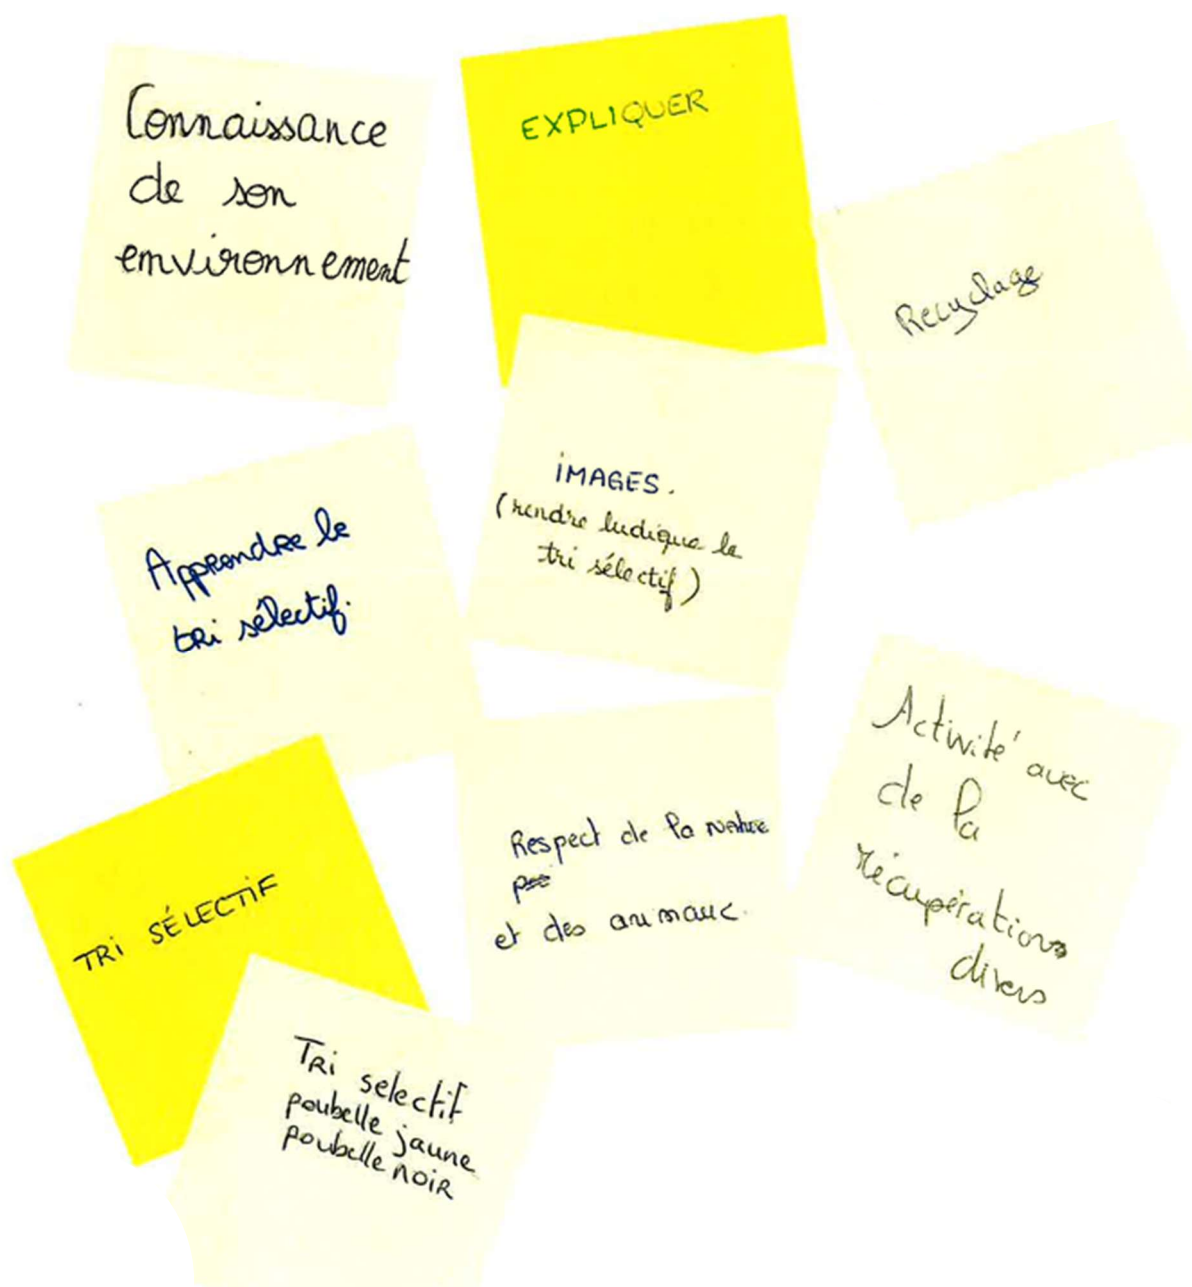 Connaissance
de son
environnement
EXPLIQUER
Recyclage
Apprendre le
tri sélectif.
IMAGES.
(rendre ludique le
tri sélectif)
Activité avec
de la
récupérations
divers
TRI SÉLECTIF
Respect de la nature
et des animaux.
TRI selectif
poubelle jaune
poubelle noir